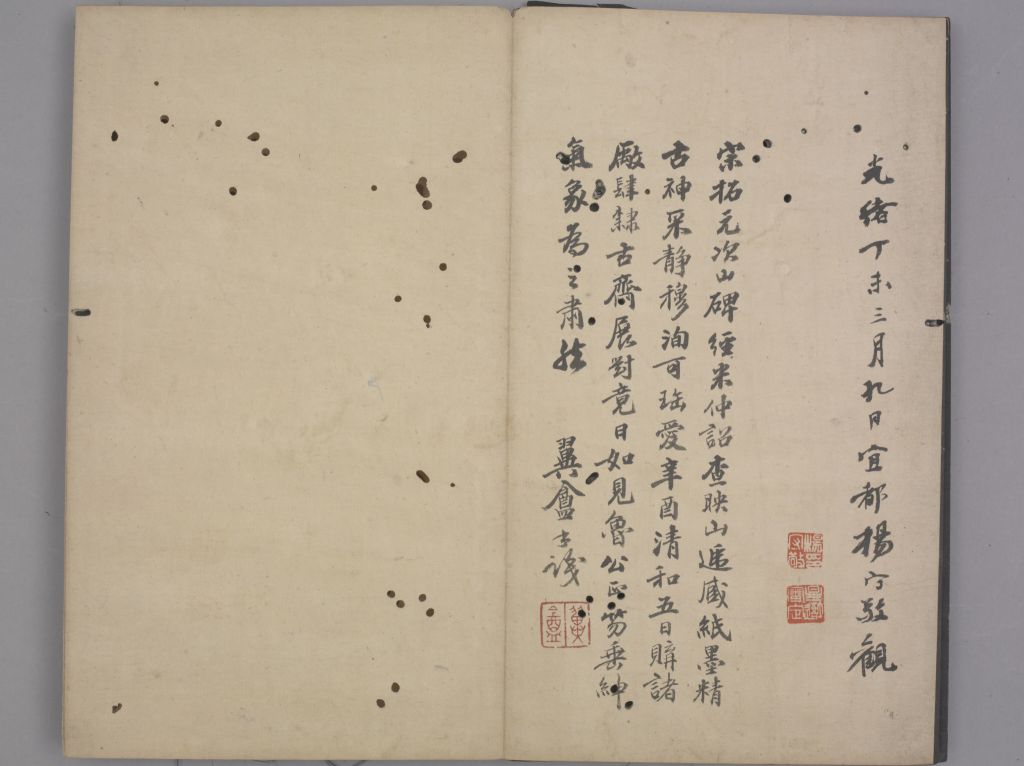 光緒丁未三月九日宜都楊守敬觀
宗拓元次山碑經米仲詔查映山遞藏紙墨精
古神采静穆洵可珤愛辛酉清和五日購諸
廠肆隸古齋展對竟日如見魯公正笏垂紳
氣象為之肅然
翼盦士識
翼盦